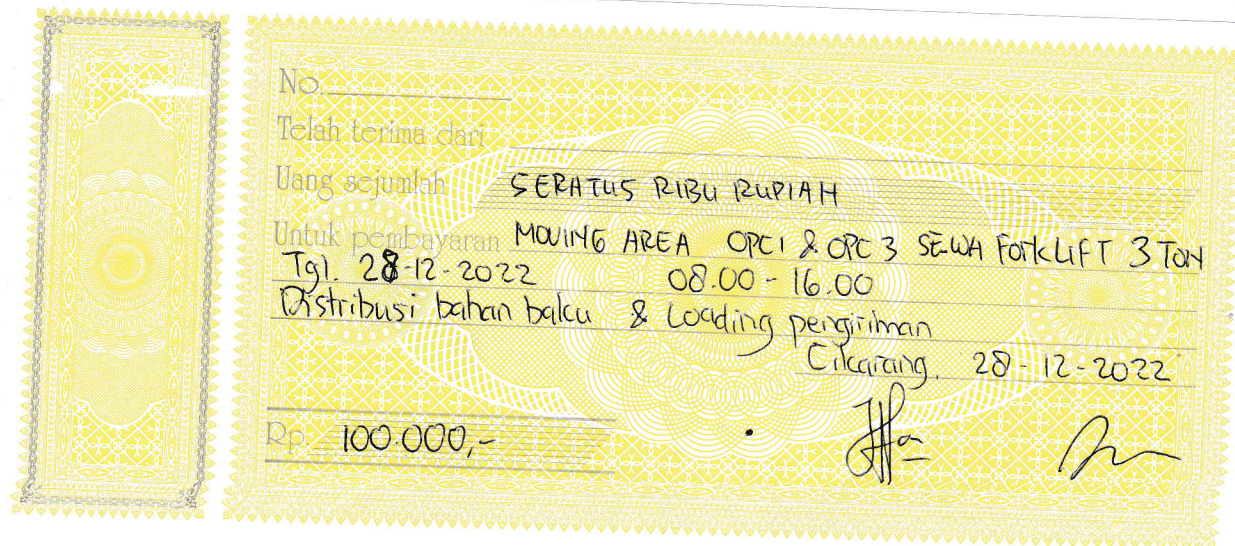 No.
Telah terima dari
Uang sejumlah SERATUS RIBU RUPIAH
Untuk pembayaran MOVING AREA OPC1 & OPC 3 SEWA FORKLIFT 3 TON
Tgl. 28-12-2022 08.00 - 16.00
Distribusi bahan baku & Loading pengiriman
Cikarang, 28-12-2022
Rp. 100.000,-